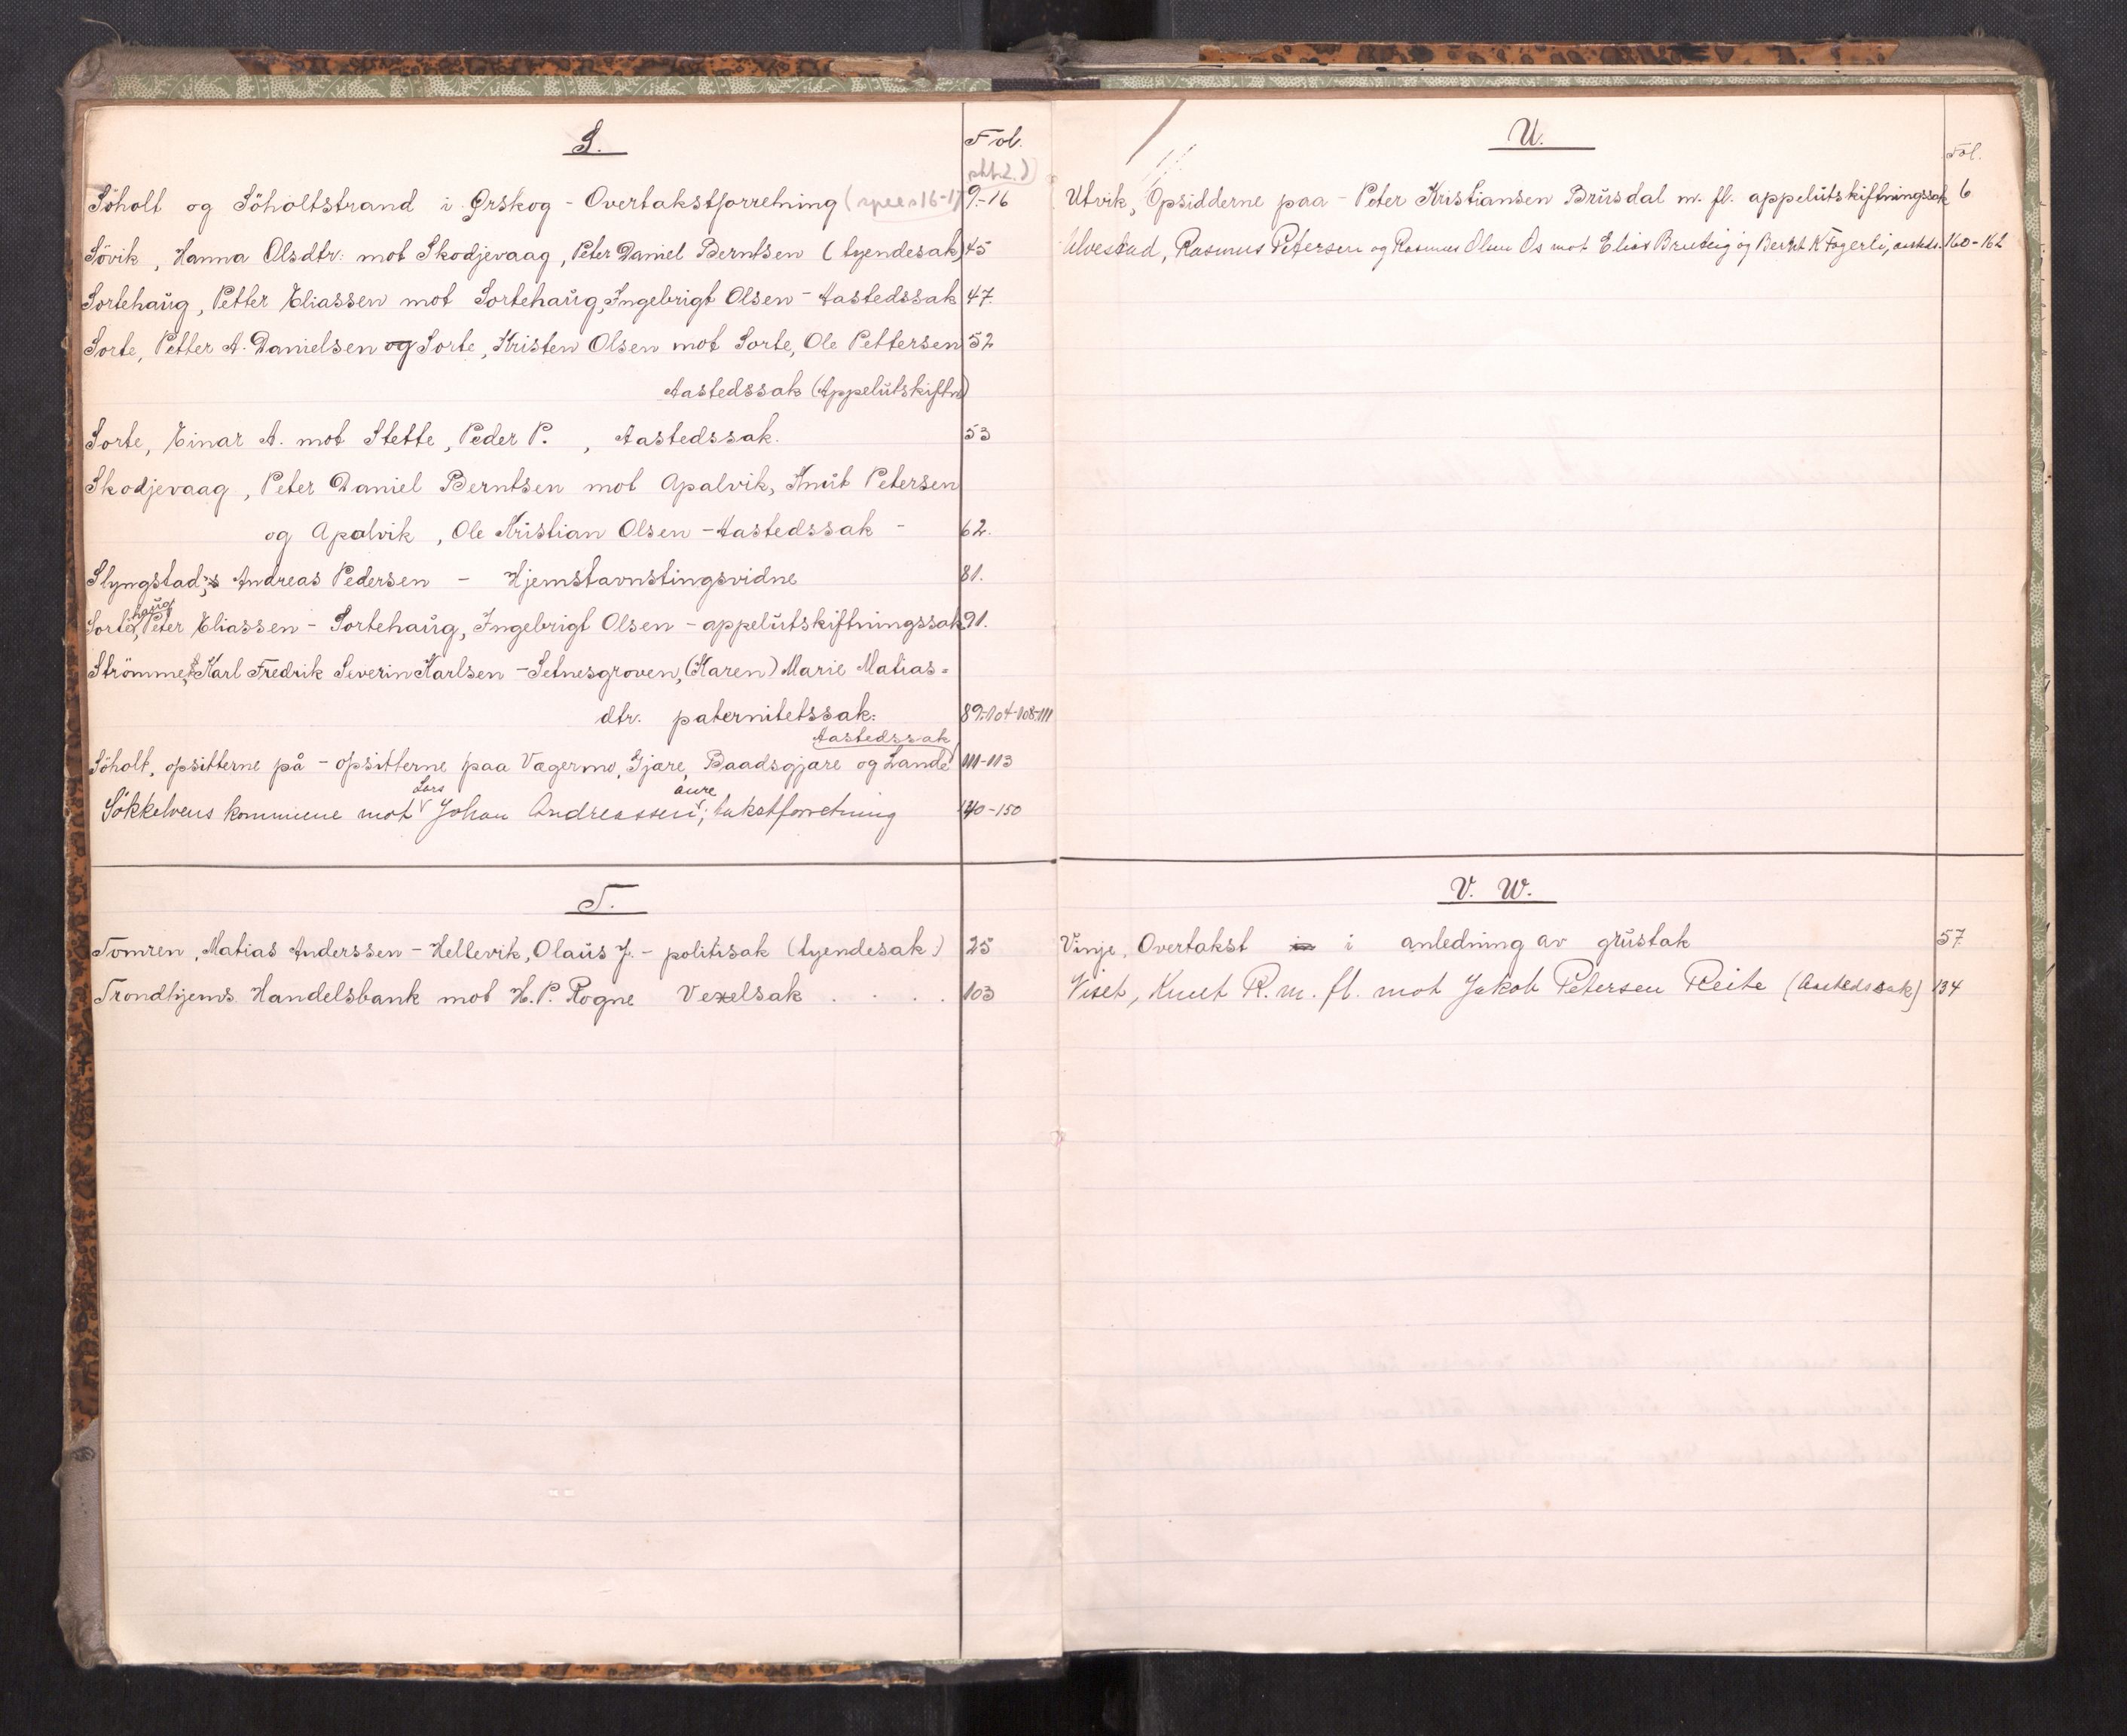 S.
Fol.
Söholt og Söholtstrand i Ørskog - Overtakstforretning 9-16
Sövik, Hanna Olsdtr: mot Skodjevaag, Peter Daniel Berntsen (tyendesak) 45
Sortehaug, Petter Eliassen mot Sortehaug, Ingebrigt Olsen - Aastedssak 47.
Sorte, Petter A. Danielsen og Sorte, Kristen Olsen mot Sorte, Ole Pettersen 52
Aastedssak (Appelutskiftn)
Sorte, Einar A. mot Stette, Peder P. , Aastedssak. 53
Skodjevaag, Peter Daniel Berntsen mot Apalvik, Knut Petersen
og Apalvik, Ole Kristian Olsen - Aastedssak - 62.
Slyngstad, Andreas Pedersen - Hjemstavnstingsvidne 81.
Sortehaug, Peter Eliassen - Sortehaug, Ingebrigt Olsen - appelutskiftningssak 91.
Strömme, Karl Fredrik Severin Karlsen - Setnesgroven, (Karen) Marie Matias=
dtr. paternitetssak. 89-104-108-111
Aastedssak
Söholt, opsitterne på - opsitterne paa Vagermo, Gjære, Baadsgjære og Lande 111-113
Sökkelvens kommune mot Lars Johan Andreassen Aure; takstforretning 140-150
T.
Tomren, Matias Anderssen - Hellevik, Olaus J. - politisak (tyendesak) 25
Trondhjems Handelsbank mot H. P. Rogne Vexelsak . . . . 103
U.
Fol.
Utvik, Opsidderne paa - Peter Kristiansen Brusdal m. fl. appelutskiftningssak 6
Ulvestad, Rasmus Petersen og Rasmus Olsen Os mot Elias Bruteig og Bernt K Fagerli, aasteds. 160-162
V. W.
Vinje, Overtakst i anledning av grustak 57
Viset, Knut R. m. fl. mot Jakob Petersen Reite (Aastedssak) 134